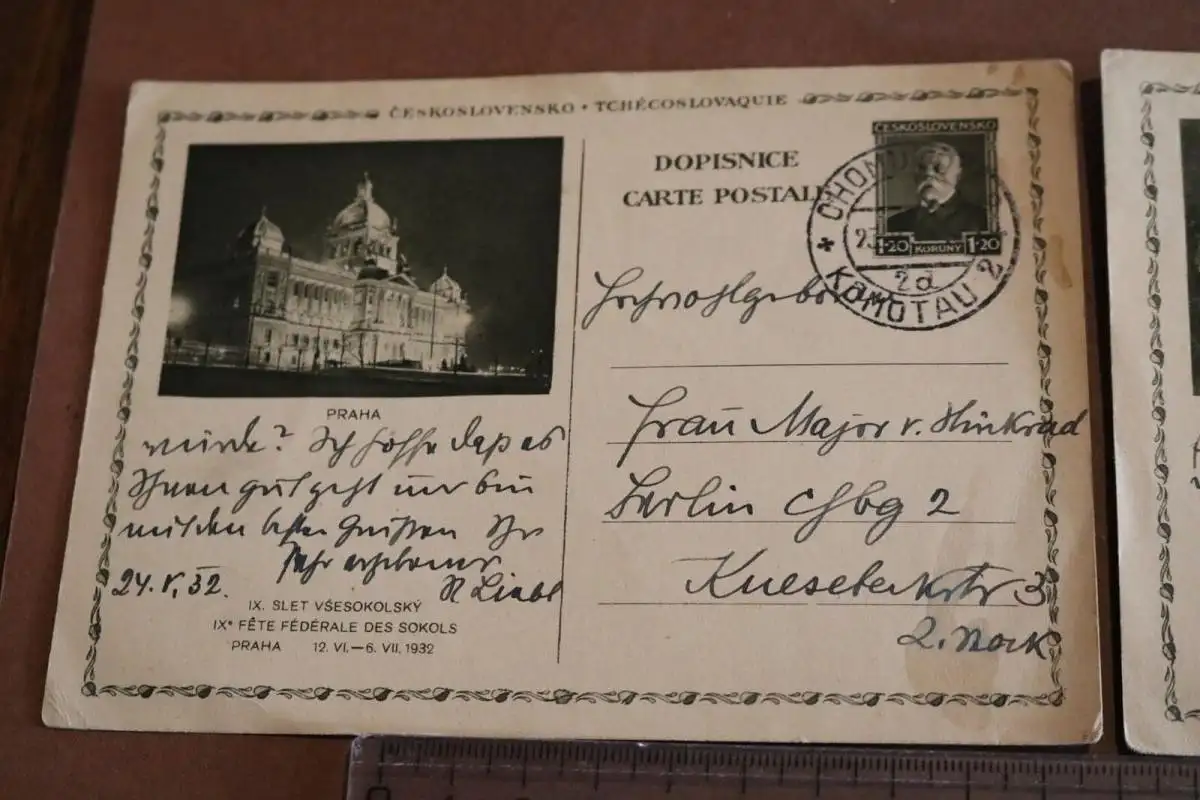 ČESKOSLOVENSKO • TCHÉCOSLOVAQUIE
DOPISNICE
CARTE POSTALE
ČESKOSLOVENSKO
1·20 KORUNY 1·20
CHOMU
KOMOTAU 2
2d
PRAHA
würde? Ich hoffe daß es
Ihnen gut geht und bin
mit den besten Grüßen Ihr
sehr ergebener
24.V.32.
IX. SLET VŠESOKOLSKÝ
IXᵉ FÊTE FÉDÉRALE DES SOKOLS
PRAHA 12. VI.—6. VII. 1932
Hochwohlgeboren
Frau Major v.
Berlin Chbg 2
Knesebeckstr 3
2. Stock
0